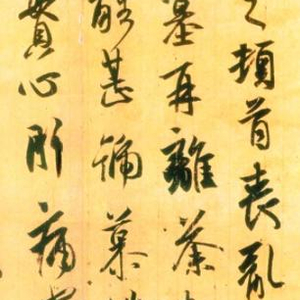 之頓首喪亂
墓再離荼
酷甚號慕
貫心肝痛當